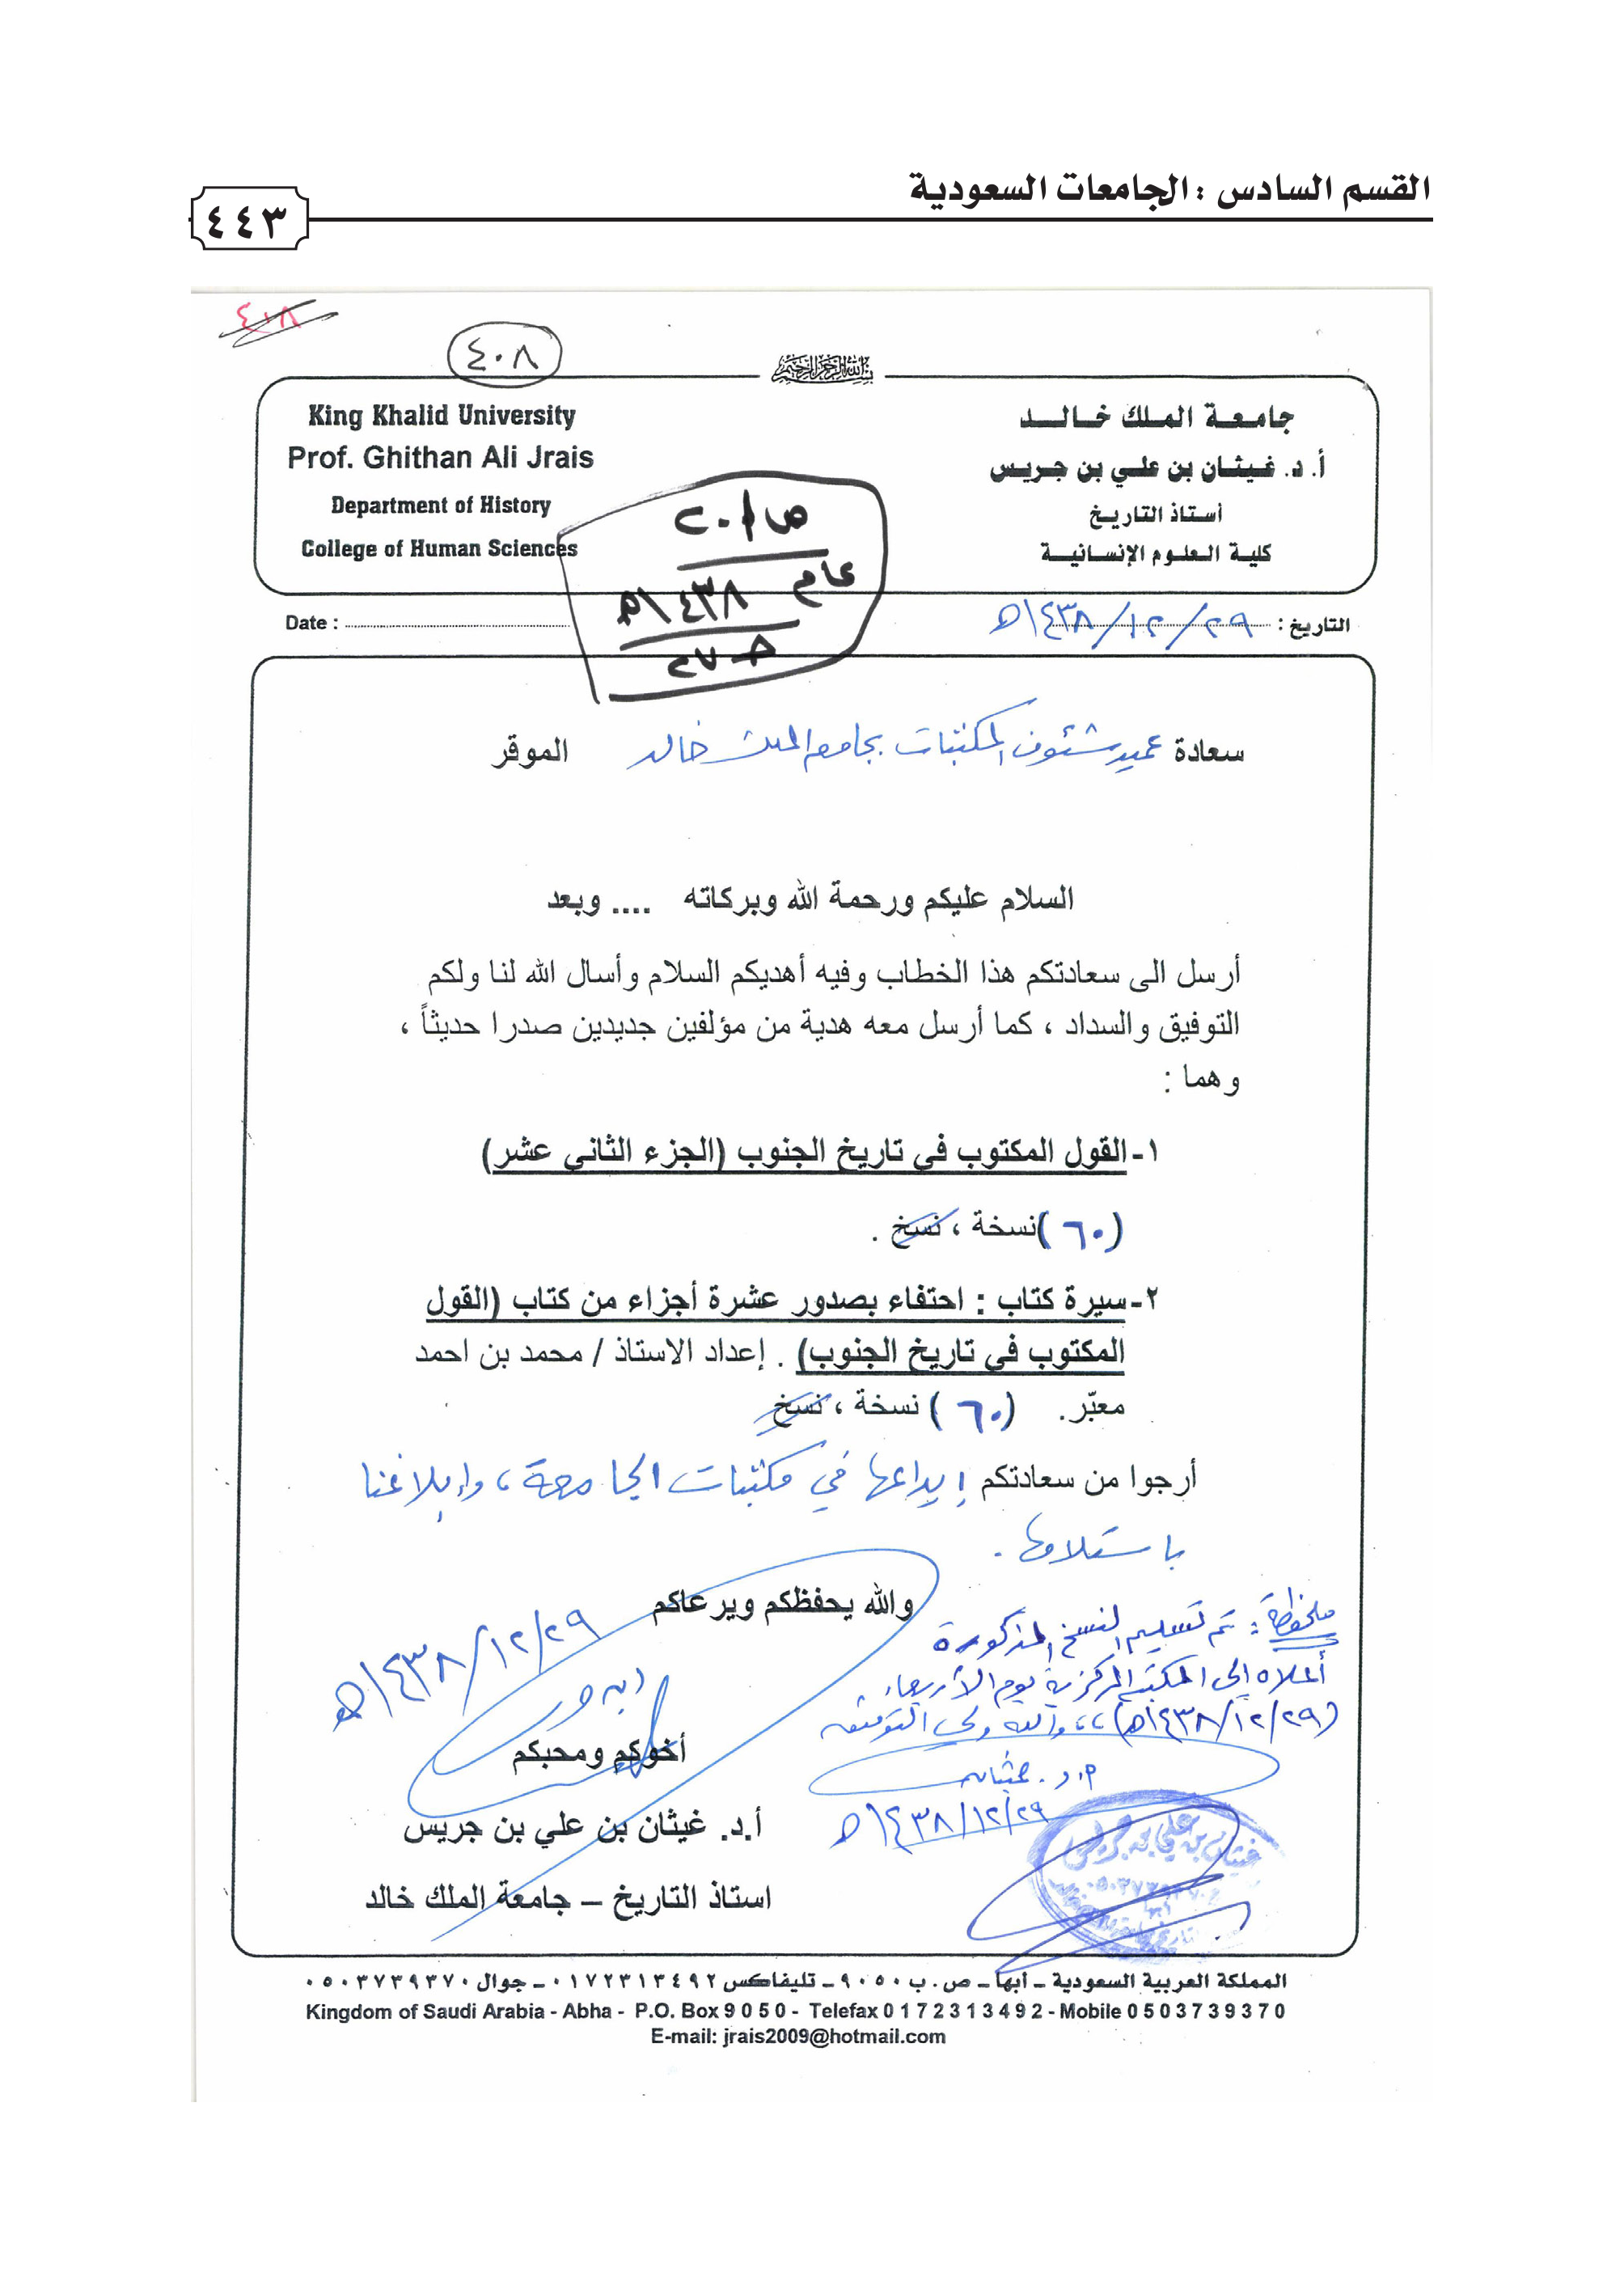 القسم السادس : الجامعات السعودية
٤٤٣
٤٠٨
٤٠٨
بسم الله الرحمن الرحيم
جامعة الملك خالد
أ. د. غيثان بن علي بن جريس
أستاذ التاريخ
كلية العلوم الإنسانية
King Khalid University
Prof. Ghithan Ali Jrais
Department of History
College of Human Sciences
عام ١٤٣٨هـ
التاريخ : ٢٩/١٢/١٤٣٨هـ
Date :
سعادة عميد شئون المكتبات بجامعة الملك خالد الموقر
السلام عليكم ورحمة الله وبركاته .... وبعد
أرسل الى سعادتكم هذا الخطاب وفيه أهديكم السلام وأسال الله لنا ولكم
التوفيق والسداد ، كما أرسل معه هدية من مؤلفين جديدين صدرا حديثاً ،
وهما :
١-القول المكتوب في تاريخ الجنوب (الجزء الثاني عشر)
(٦٠) نسخة ، نسخ .
٢-سيرة كتاب : احتفاء بصدور عشرة أجزاء من كتاب (القول
المكتوب في تاريخ الجنوب) . إعداد الاستاذ / محمد بن احمد
معبّر. (٦٠) نسخة ، نسخ
أرجوا من سعادتكم إيداعها في مكتبات الجامعة ، وإبلاغنا
باستلامها .
والله يحفظكم ويرعاكم
٢٩/١٢/١٤٣٨هـ
ملحوظة : تم تسليم النسخ المذكورة
أعلاه إلى المكتبة المركزية يوم الأربعاء
(٢٩/١٢/١٤٣٨هـ) ،، والله ولي التوفيق
أ.د. غيثان
٢٩/١٢/١٤٣٨هـ
أخوكم ومحبكم
أ.د. غيثان بن علي بن جريس
استاذ التاريخ – جامعة الملك خالد
غيثان بن علي بن جريس
أبها
المملكة العربية السعودية ـ أبها ـ ص . ب ٩٠٥٠ ـ تليفاكس ٠١٧٢٣١٣٤٩٢ ـ جوال ٠٥٠٣٧٣٩٣٧٠
Kingdom of Saudi Arabia - Abha - P.O. Box 9 0 5 0 - Telefax 0 1 7 2 3 1 3 4 9 2 - Mobile 0 5 0 3 7 3 9 3 7 0
E-mail: jrais2009@hotmail.com